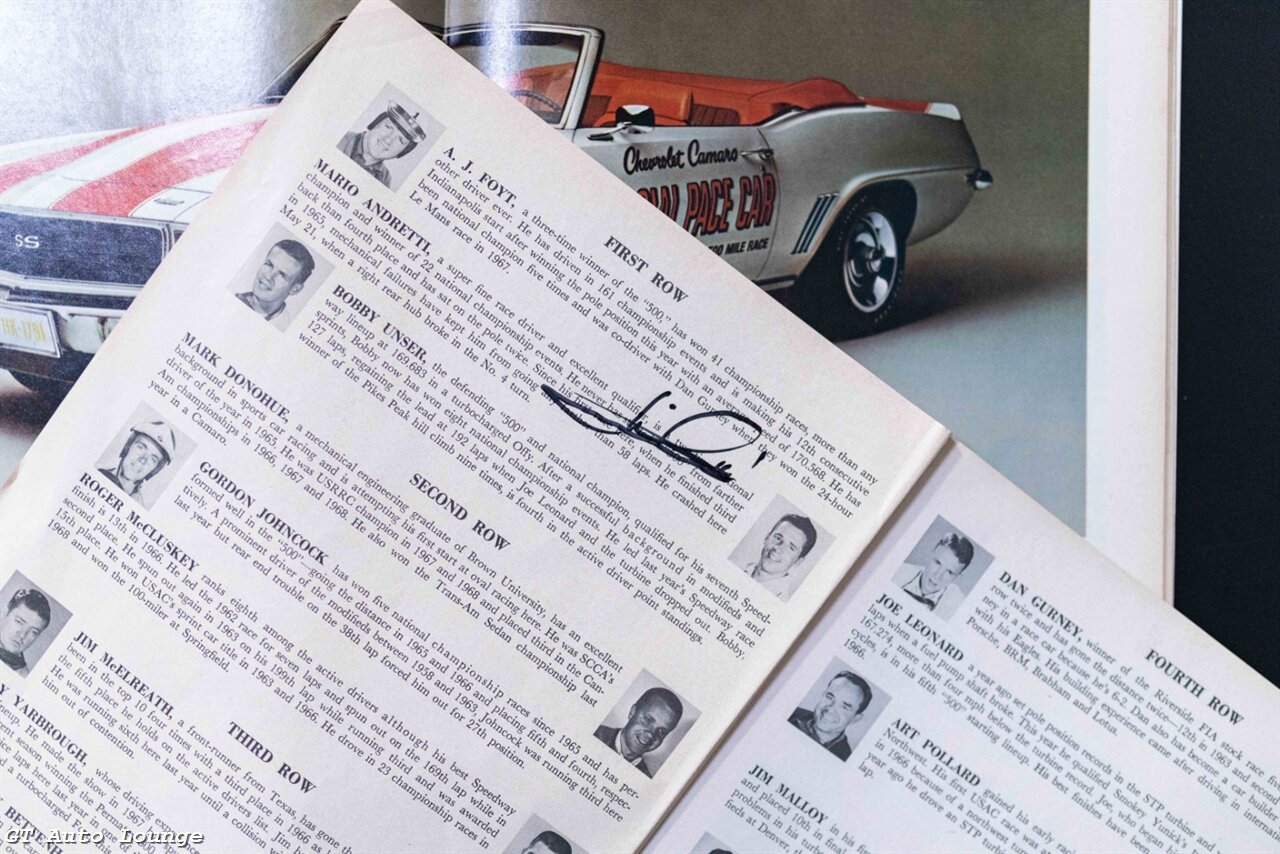 Chevrolet Camaro
PACE CAR
MILE RACE
SS
FIRST ROW
A. J. FOYT, a three-time winner of the "500," has won 41 championship races, more than any
other driver ever. He has driven in 161 championship events and is making his 12th consecutive
Indianapolis start after winning the pole position this year with an average speed of 170.568. He has
been national champion five times and was co-driver with Dan Gurney when they won the 24-hour
Le Mans race in 1967.
MARIO ANDRETTI, a super fine race driver and excellent qualifier, is
champion and winner of 22 national championship events. He never has from farther
back than fourth place and has sat on the pole twice. Since his first here, when he finished third
in 1965, mechanical failures have kept him from going than 58 laps. He crashed here
May 21, when a right rear hub broke in the No. 4 turn.
BOBBY UNSER, the defending "500" and national champion, qualified for his seventh Speed-
way lineup at 169.683 in a turbocharged Offy. After a successful background in modifieds and
sprints, Bobby now has won eight national championship events. He led last year's Speedway race
127 laps, regaining the lead at 192 laps when Joe Leonard and the turbine dropped out. Bobby,
winner of the Pikes Peak hill climb nine times, is fourth in the active driver point standings.
SECOND ROW
MARK DONOHUE, a mechanical engineering graduate of Brown University, has an excellent
background in sports car racing and is attempting his first start at oval racing here. He was SCCA's
driver of the year in 1965. He was USRRC champion in 1967 and 1968 and placed third in the Can-
Am championships in 1966, 1967 and 1968. He also won the Trans-Am Sedan championship last
year in a Camaro.
GORDON JOHNCOCK has won five national championship races since 1965 and has per-
formed well in the "500"—going the distance in 1965 and 1966 and placing fifth and fourth, respec-
tively. A prominent driver of the modifieds between 1958 and 1963, Johncock was running third here
last year but rear end trouble on the 38th lap forced him out for 27th position.
ROGER McCLUSKEY ranks eighth among the active drivers although his best Speedway
finish is 13th in 1966. He led the 1962 race for seven laps and spun out on the 169th lap while in
second place. He spun out again in 1963 on his 199th lap while running third and was awarded
15th place. He won USAC's sprint car title in 1963 and 1966. He drove in 23 championship races in
1968 and won the 100-miler at Springfield.
THIRD ROW
JIM McELREATH, a front-runner from Texas, has gone the
been in the top 10 four times with a third place in 1966 as
the fifth place he holds on the active drivers list. Jim
He was running sixth here last year until a collision
him out of contention.
YARBROUGH, whose driving
lineup. He made the show in 1967
season winning the
laps here last year in
a turbocharged
FOURTH ROW
DAN GURNEY, winner of the Riverside FIA stock race
row twice and has gone the distance twice—12th in 1963 and second
ney in a race car because he's 6-2. Dan also has become a car builder
with his Eagles. His building experience came after driving in internat
Porsche, BRM, Brabham and Lotus.
JOE LEONARD a year ago set pole position records in the STP turbine
laps when a fuel pump shaft broke. This year he qualified Smokey Yunick's
167.274, more than four mph below the turbine record. Joe, who began his
cycles, is in his fifth "500" starting lineup. His best finishes have been
1966.
ART POLLARD gained his early
Northwest. His first USAC race was
in 1966 because of a northwest
year ago he drove an STP
lap.
JIM MALLOY, in his
and placed 10th in final
fieds at Denver,
GT Auto Lounge